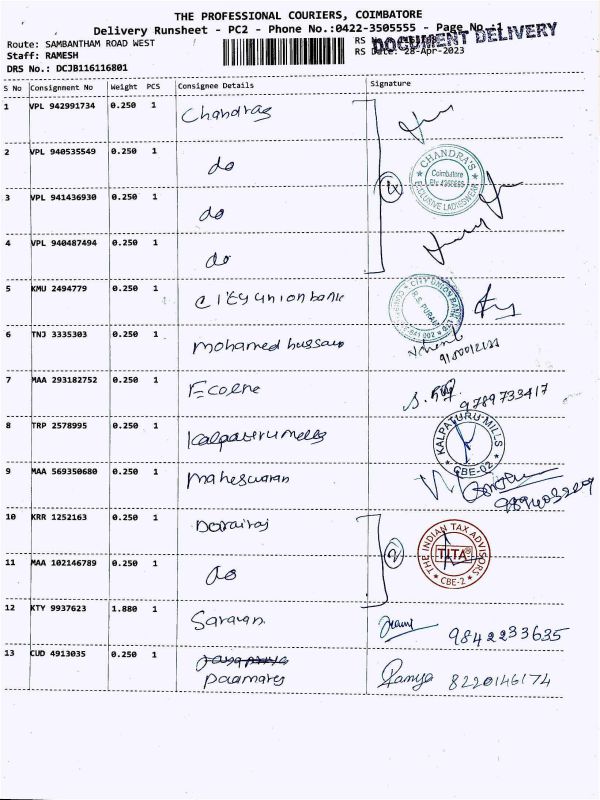 THE PROFESSIONAL COURIERS, COIMBATORE
Delivery Runsheet - PC2 - Phone No.:0422-3505555 - Page No.:1
DOCUMENT DELIVERY
Route: SAMBANTHAM ROAD WEST
Staff: RAMESH RS Date: 28-Apr-2023
DRS No.: DCJB116116801
S No Consignment No Weight PCS Consignee Details Signature
1 VPL 942991734 0.250 1 Chandras
2 VPL 940535549 0.250 1 do
CHANDRA'S Coimbatore EXCLUSIVE LADIESWEAR
3 VPL 941436930 0.250 1 do 4
4 VPL 940487494 0.250 1 do
5 KMU 2494779 0.250 1 City union bank
CITY UNION BANK R.S. PURAM
6 TNJ 3335303 0.250 1 mohamed hussain
7 MAA 293182752 0.250 1 Ecolne 9789733417
8 TRP 2578995 0.250 1 Kalpaturu mells
KALPATURU MILLS CBE-02
9 MAA 569350680 0.250 1 maheswaran
10 KRR 1252163 0.250 1 Dorairaj
THE INDIAN TAX ADVISORS TITA CBE-2
11 MAA 102146789 0.250 1 do 2
12 KTY 9937623 1.880 1 Saravan 9842233635
13 CUD 4913035 0.250 1 Paamares Ramya 8220146174